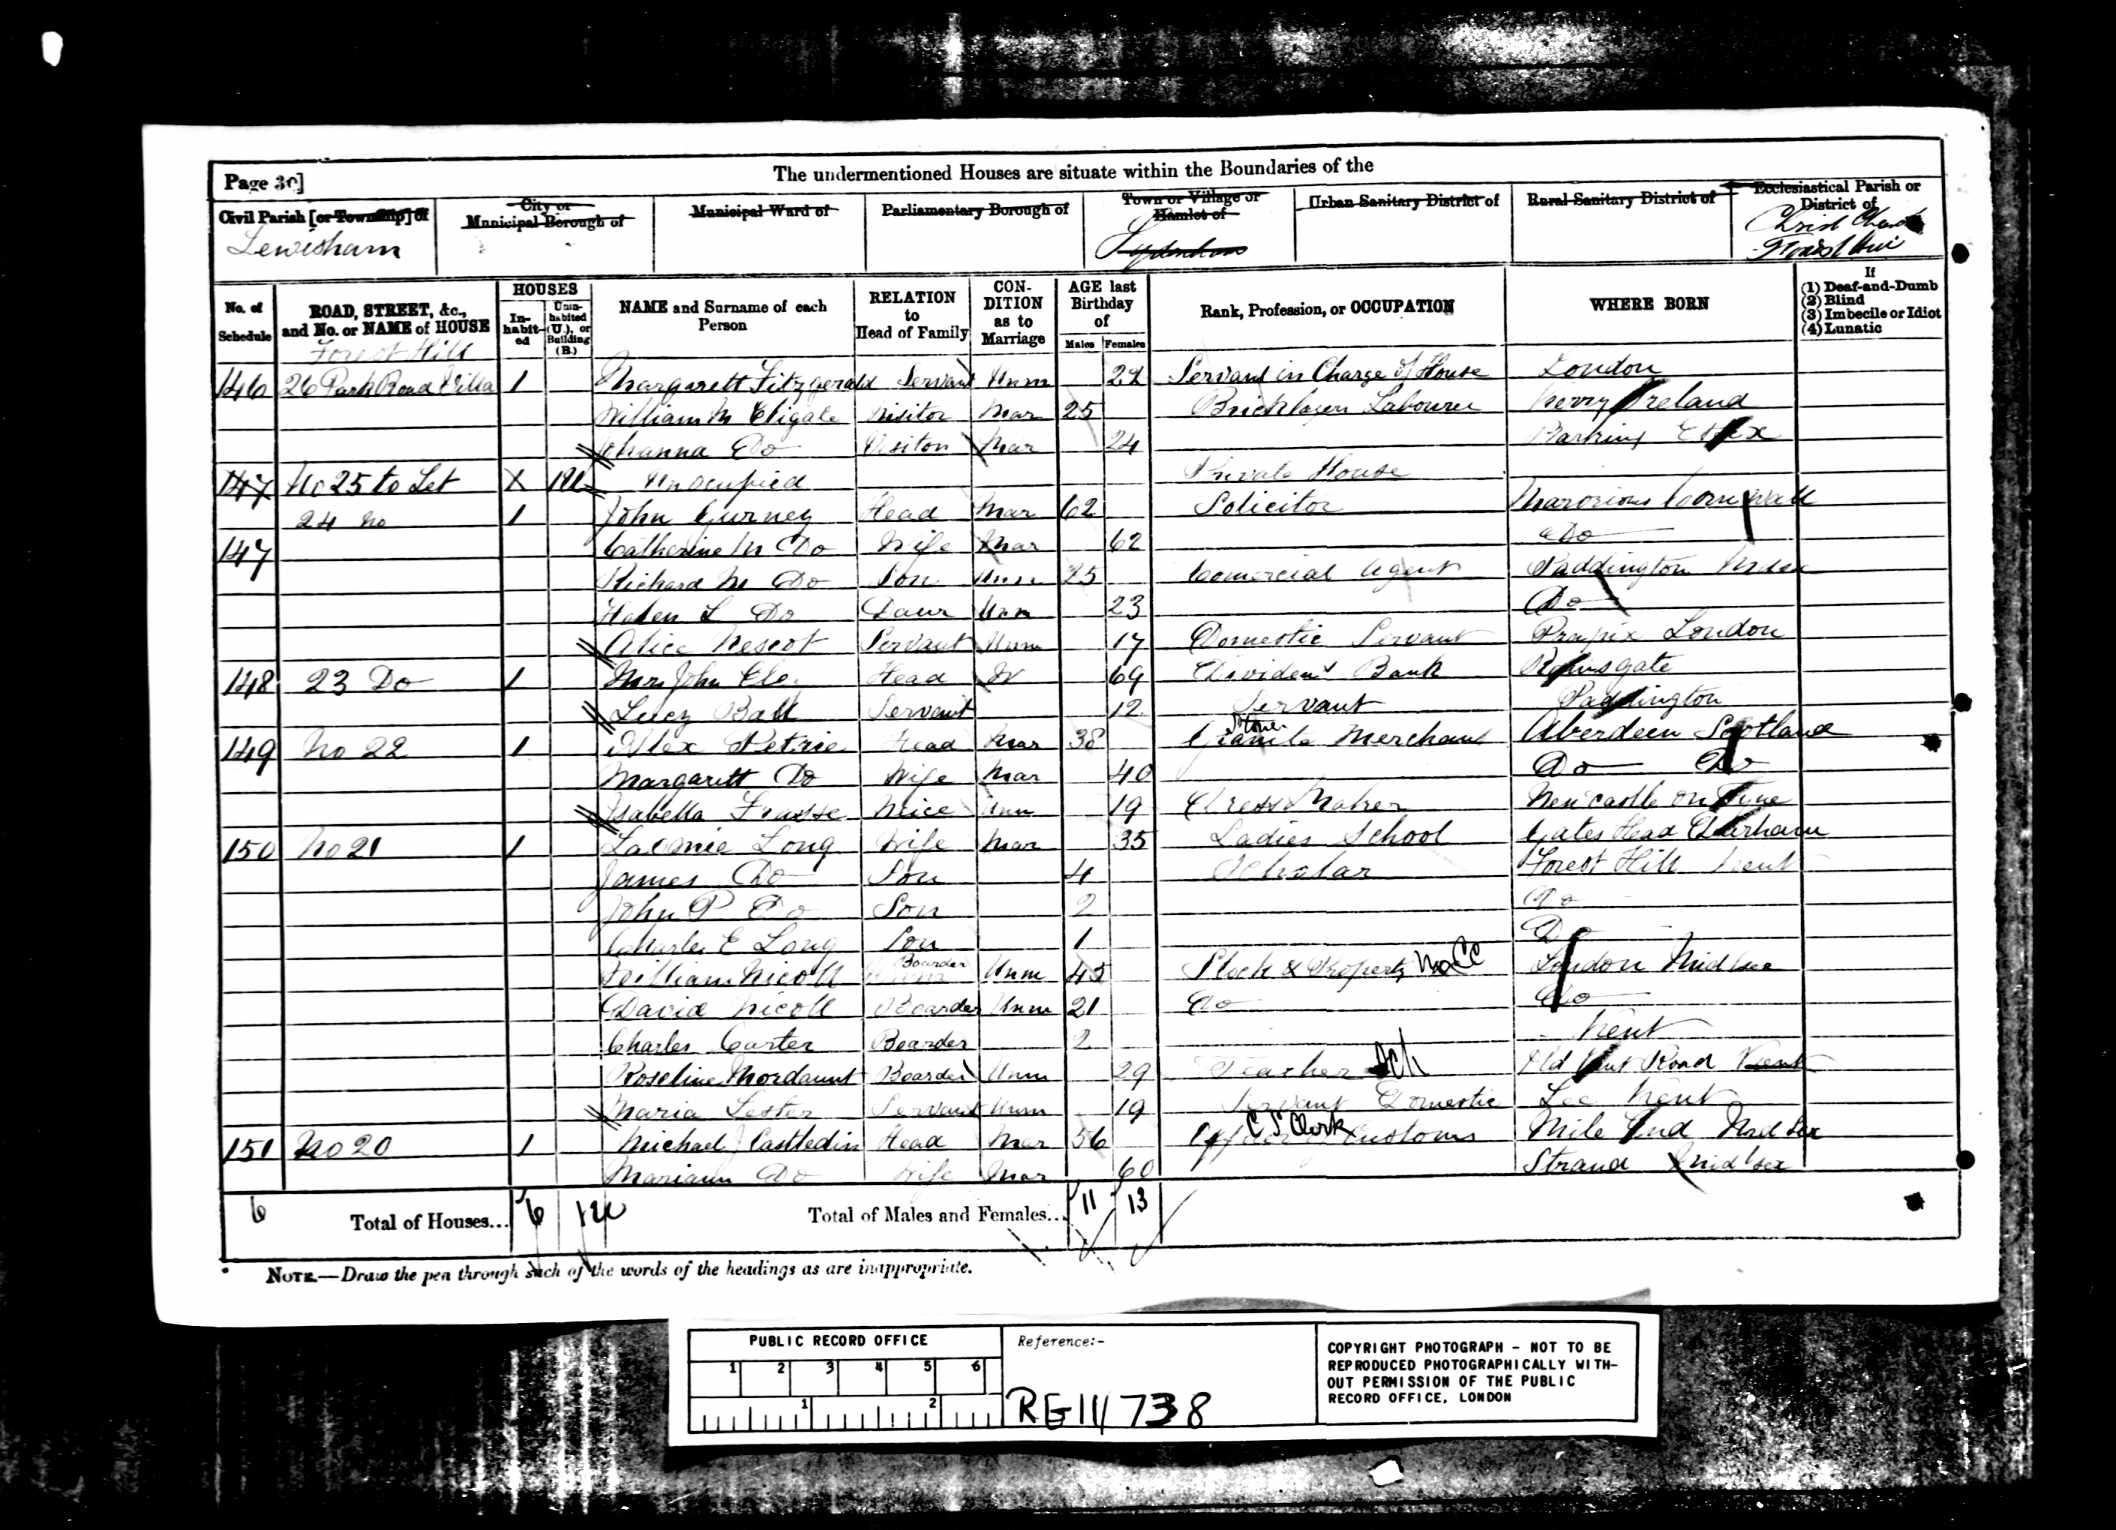 The undermentioned Houses are situate within the Boundaries of the
Page 30]
Civil Parish [or Township] of
Lewisham
City or
Municipal Borough of
Municipal Ward of
Parliamentary Borough of
Town or Village or
Hamlet of
Sydenham
Urban Sanitary District of
Rural Sanitary District of
Ecclesiastical Parish or
District of
Christ Church
Forest Hill
No. of
Schedule
ROAD, STREET, &c.,
and No. or NAME of HOUSE
HOUSES
In-
habit-
ed
Unin-
habited
(U.), or
Building
(B.)
NAME and Surname of each
Person
RELATION
to
Head of Family
CON-
DITION
as to
Marriage
AGE last
Birthday
of
Males Females
Rank, Profession, or OCCUPATION
WHERE BORN
If
(1) Deaf-and-Dumb
(2) Blind
(3) Imbecile or Idiot
(4) Lunatic
Forest Hill
146 26 Park Road Villa 1 Margarett Fitzgerald Servant Unm Servant in Charge of House London
William M Visitor Mar 25 Bricklayer Labourer Kerry Ireland
Johanna Do Visitor Mar 24 Barking Essex
147 No 25 to Let X 1U Unocupied Private House
24 1 John Gurney Head Mar 62 Solicitor
147 Catherine M Do Wife Mar 62 Do
Richard M Do Son Unm 25 Comercial Agent Paddington
Helen L Do Daur Unm 23 Do
Alice Servant Unm 17 Domestic Servant London
148 23 Do 1 Mrs John Head W 69 Dividend Bank Ramsgate
Lucy Ball Servant 12 Servant Paddington
149 No 22 1 Alex Petrie Head Mar 38 Granite Stone Merchant Aberdeen Scotland
Margarett Do Wife Mar 40 Do Do
Isabella Neice Unm 19 Dress Maker Newcastle on Tyne
150 No 21 1 Long Wife Mar 35 Ladies School Gates Head Durham
James Do Son 4 Scholar Forest Hill Kent
John P Do Son 2 Do
Charles E Long Son 1 Do
William Nicoll Boarder Unm 45 London Midlsex
David Nicoll Boarder Unm 21 Do Do
Charles Carter Boarder 2 Kent
Roseline Mordaunt Boarder Unm 29 Teacher Sch Old Kent Road Kent
Maria Lester Servant Unm 19 Servant Domestic Lee Kent
151 No 20 1 Michael Castledin Head Mar 56 C S Clerk Customs Mile End Midlsex
Mariann Do Wife Mar 60 Strand Midlsex
6 Total of Houses... 6 1U Total of Males and Females... 11 13
NOTE.—Draw the pen through such of the words of the headings as are inappropriate.
PUBLIC RECORD OFFICE
1 2 3 4 5 6
1 2
Reference:-
RG 11/738
COPYRIGHT PHOTOGRAPH - NOT TO BE
REPRODUCED PHOTOGRAPHICALLY WITH-
OUT PERMISSION OF THE PUBLIC
RECORD OFFICE, LONDON